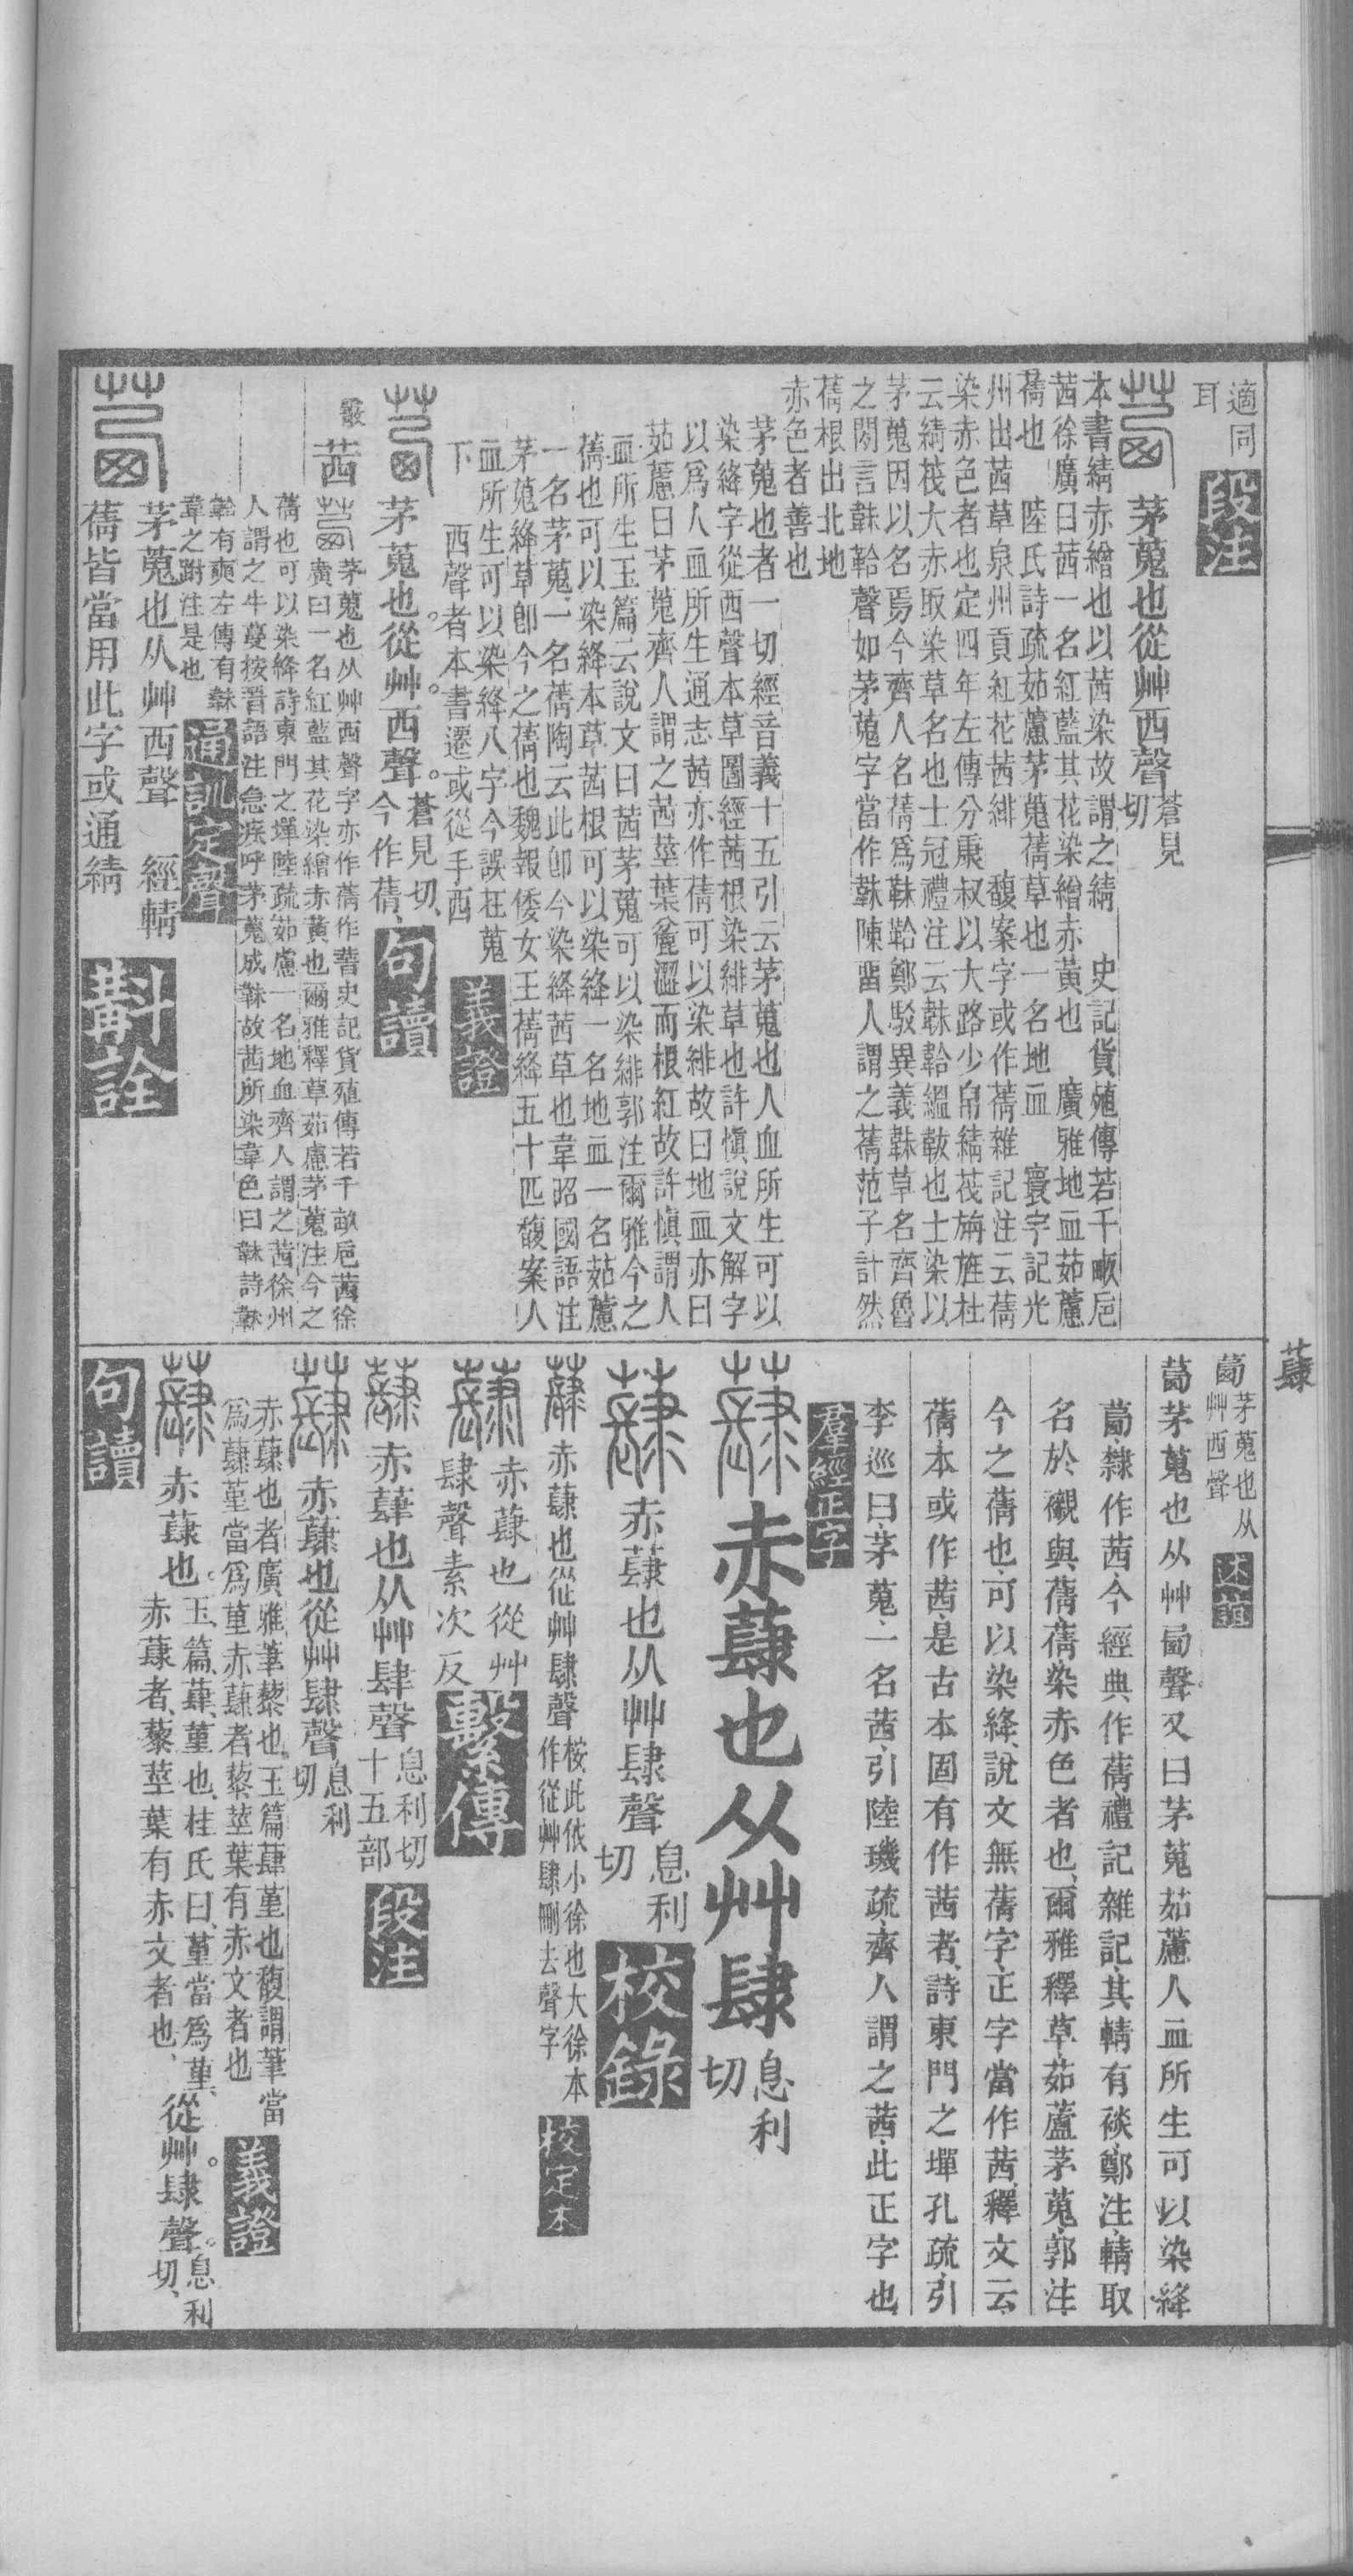 適同
耳
段注
茅蒐也從艸西聲
蒼見
切
本書綪赤繒也以茜染故謂之綪 史記貨殖傳若千畝巵
茜徐廣曰茜一名紅藍其花染繒赤黃也 廣雅地血茹藘
蒨也 陸氏詩疏茹藘茅蒐蒨草也一名地血 寰宇記光
州出茜草泉州貢紅花茜緋 馥案字或作蒨雜記注云蒨
染赤色者也定四年左傳分康叔以大路少帛綪茷旃旌杜
云綪茷大赤取染草名也士冠禮注云韎韐縕韍也士染以
茅蒐因以名焉今齊人名蒨爲韎韐鄭駁異義韎草名齊魯
之閒言韎韐聲如茅蒐字當作韎陳畱人謂之蒨范子計然
蒨根出北地
赤色者善也
茅蒐也者一切經音義十五引云茅蒐也人血所生可以
染絳字從西聲本草圖經茜根染緋草也許愼說文解字
以爲人血所生通志茜亦作蒨可以染緋故曰地血亦曰
茹藘曰茅蒐齊人謂之茜莖葉𧀎澀而根紅故許愼謂人
血所生玉篇云說文曰茜茅蒐可以染緋郭注爾雅今之
蒨也可以染絳本草茜根可以染絳一名地血一名茹藘
一名茅蒐一名蒨陶云此卽今染絳茜草也韋昭國語注
茅蒐絳草卽今之蒨也魏報倭女王蒨絳五十匹馥案人
血所生可以染絳八字今誤在蒐
下 西聲者本書遷或從手西
義證
茅蒐也。從艸。西聲。
蒼見切、
今作蒨、
句讀
茜
茅蒐也从艸西聲字亦作蒨作蒨史記貨殖傳若千畝巵茜徐
廣曰一名紅藍其花染繒赤黃也爾雅釋草茹藘茅蒐注今之
蒨也可以染絳詩東門之墠陸疏茹藘一名地血齊人謂之茜徐州
人謂之牛蔓按晉語注急疾呼茅蒐成韎故茜所染韋色曰韎詩韎
韐有奭左傳有韎
韋之跗注是也
通訓定聲
茅蒐也从艸西聲 經輤
蒨皆當用此字或通綪
斠詮
茅蒐也从
艸西聲
述誼
茅蒐也从艸㢴聲又曰茅蒐茹藘人血所生可以染絳
隸作茜今經典作蒨禮記雜記其輤有裧鄭注輤取
名於櫬與蒨蒨染赤色者也爾雅釋草茹藘茅蒐郭注
今之蒨也可以染絳說文無蒨字正字當作茜釋文云
蒨本或作茜是古本固有作茜者詩東門之墠孔疏引
李巡曰茅蒐一名茜引陸璣疏齊人謂之茜此正字也
羣經正字
赤蕼也从艸肆
息利
切
赤蕼也从艸肆聲
息利
切
校錄
赤蕼也從艸肆聲
桉此依小徐也大徐本
作從艸肆刪去聲字
校定本
赤蕼也從艸
肆聲素次反
繫傳
赤蕼也从艸肆聲
息利切
十五部
段注
赤蕼也從艸肆聲
息利
切
赤蕼也者廣雅䔺藜也玉篇蕼堇也馥謂䔺當
爲蕼堇當爲堇赤蕼者藜莖葉有赤文者也
義證
赤蕼也。
玉篇、蕼、堇也、桂氏曰、堇當爲堇、
赤蕼者、藜莖葉有赤文者也、
從艸。肆聲。
息利
切、
句讀
蕼